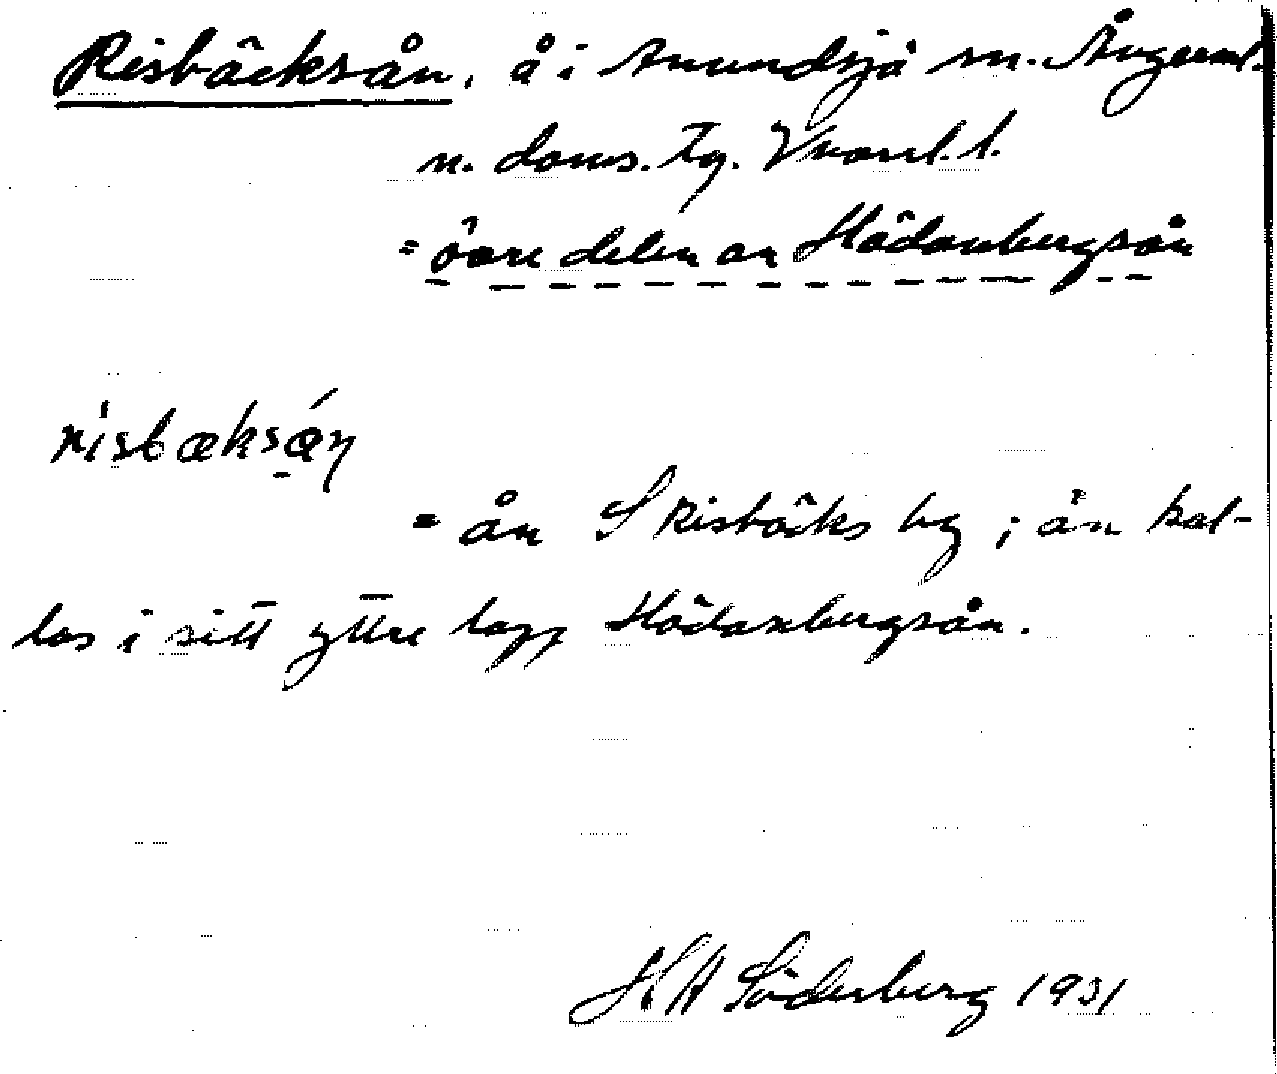 Risbäcksån, å i Anundsjö sn. Ångerml.
n. doms. tg. V
= övre delen av Hädanbergsån
risbæksǽn
= ån S Risbäcks by; ån kal-
las i sitt yttre lopp Hädanbergsån.
HA Söderberg 1931